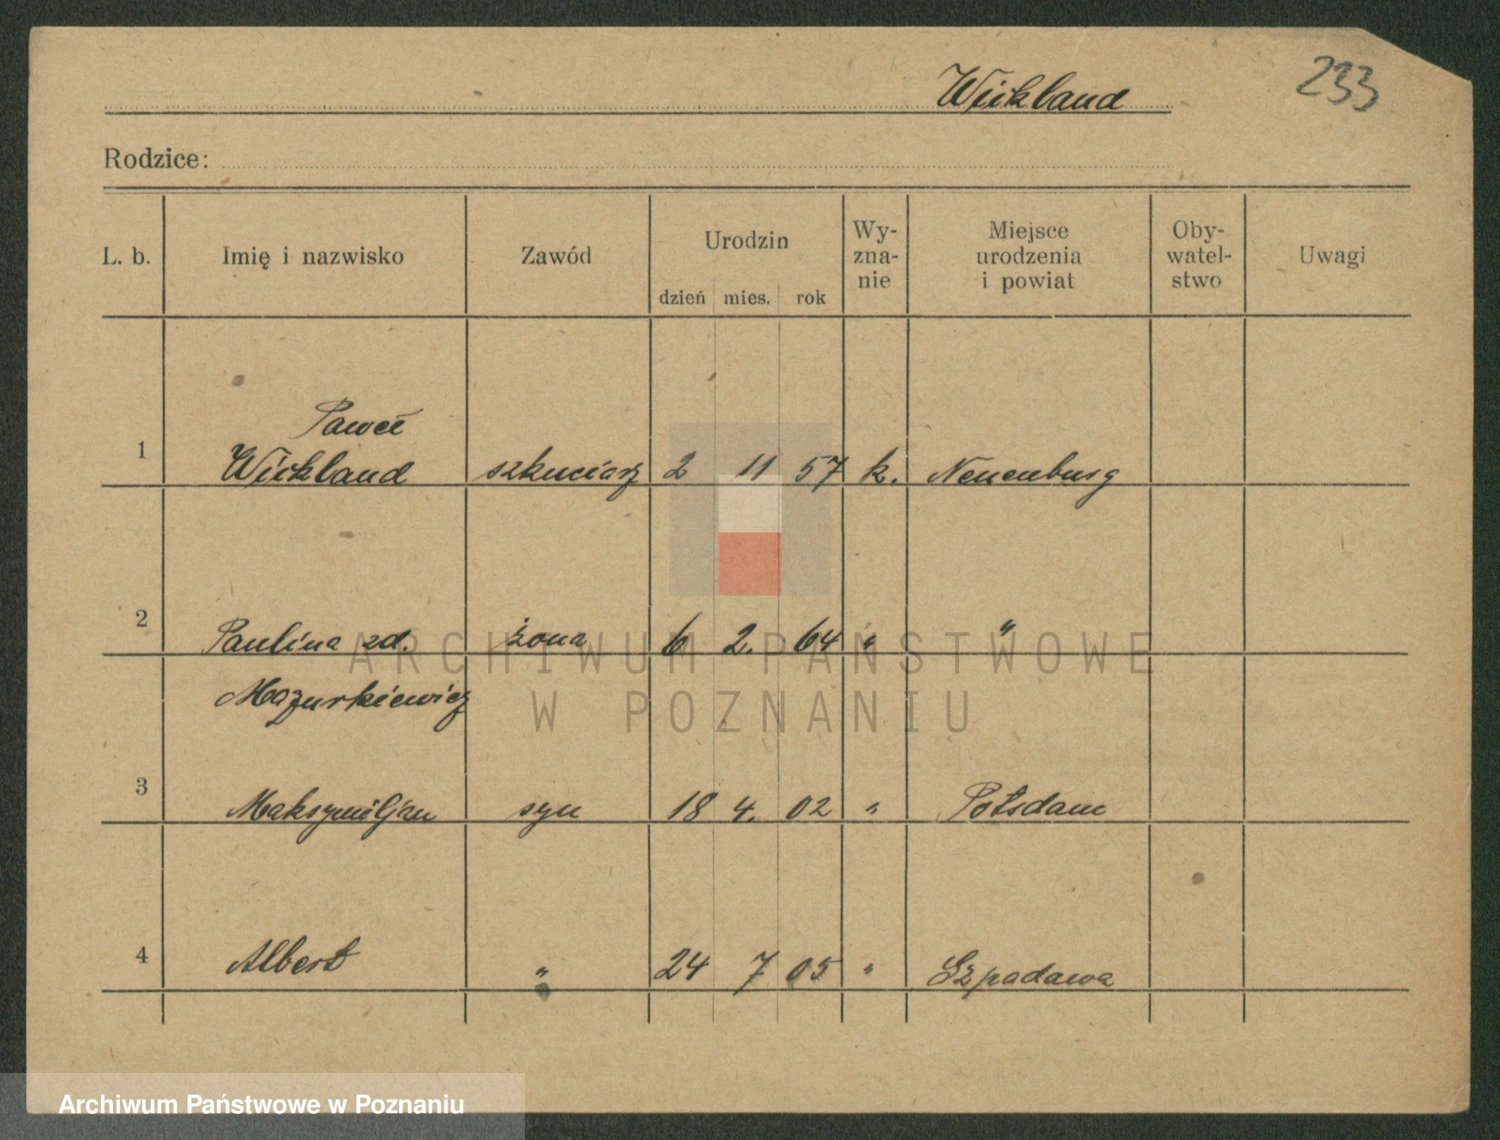 Wickland
233
Rodzice:
L. b.
Imię i nazwisko
Zawód
Urodzin
dzień mies. rok
Wy-
zna-
nie
Miejsce
urodzenia
i powiat
Oby-
watel-
stwo
Uwagi
Paweł
1 Wickland szkuciarz 2 11 57 k. Neuenburg
2 Paulina zd. żona 6 2. 64 " "
Mazurkiewicz
3 Maksymiljan syn 18 4. 02 " Potsdam
4 Albert " 24 7 05 " Szpadawa
ARCHIWUM PAŃSTWOWE
W POZNANIU
Archiwum Państwowe w Poznaniu